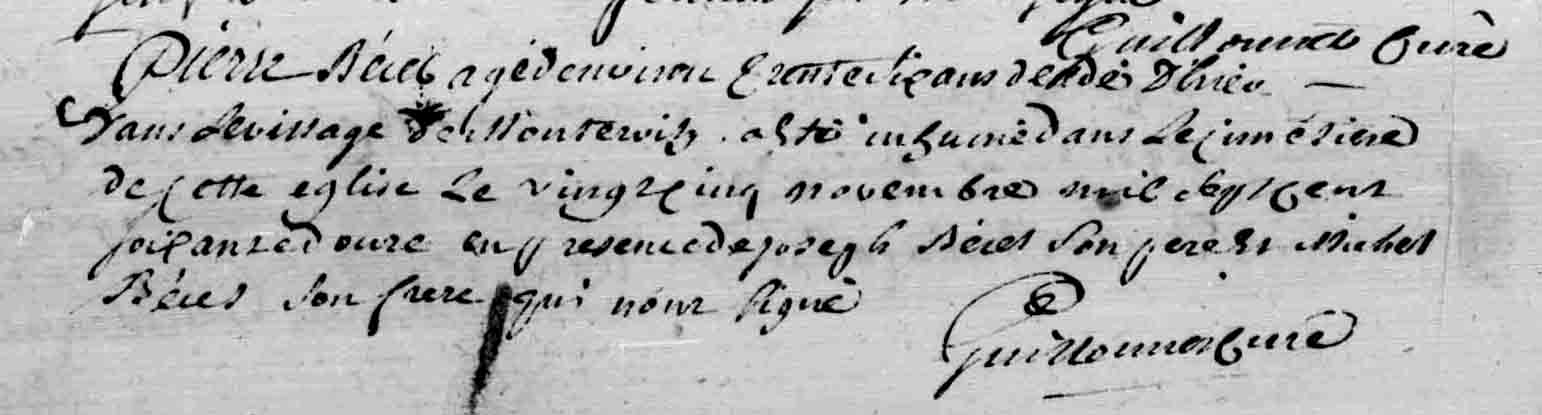 Guillonnet Curé
Pierre Béiet agé denviron trente six ans decedé Dhier
Dans Le vissage de Montervis a Esté inhumé dans Le Cimetiere
de Cette eglise Le vingt Cinq novembre mil Sept Cent
soixante douze en presence de joseph Béiet Son pere Et Michel
Béiet Son frere qui n'ont Signé
Guillonnet Curé